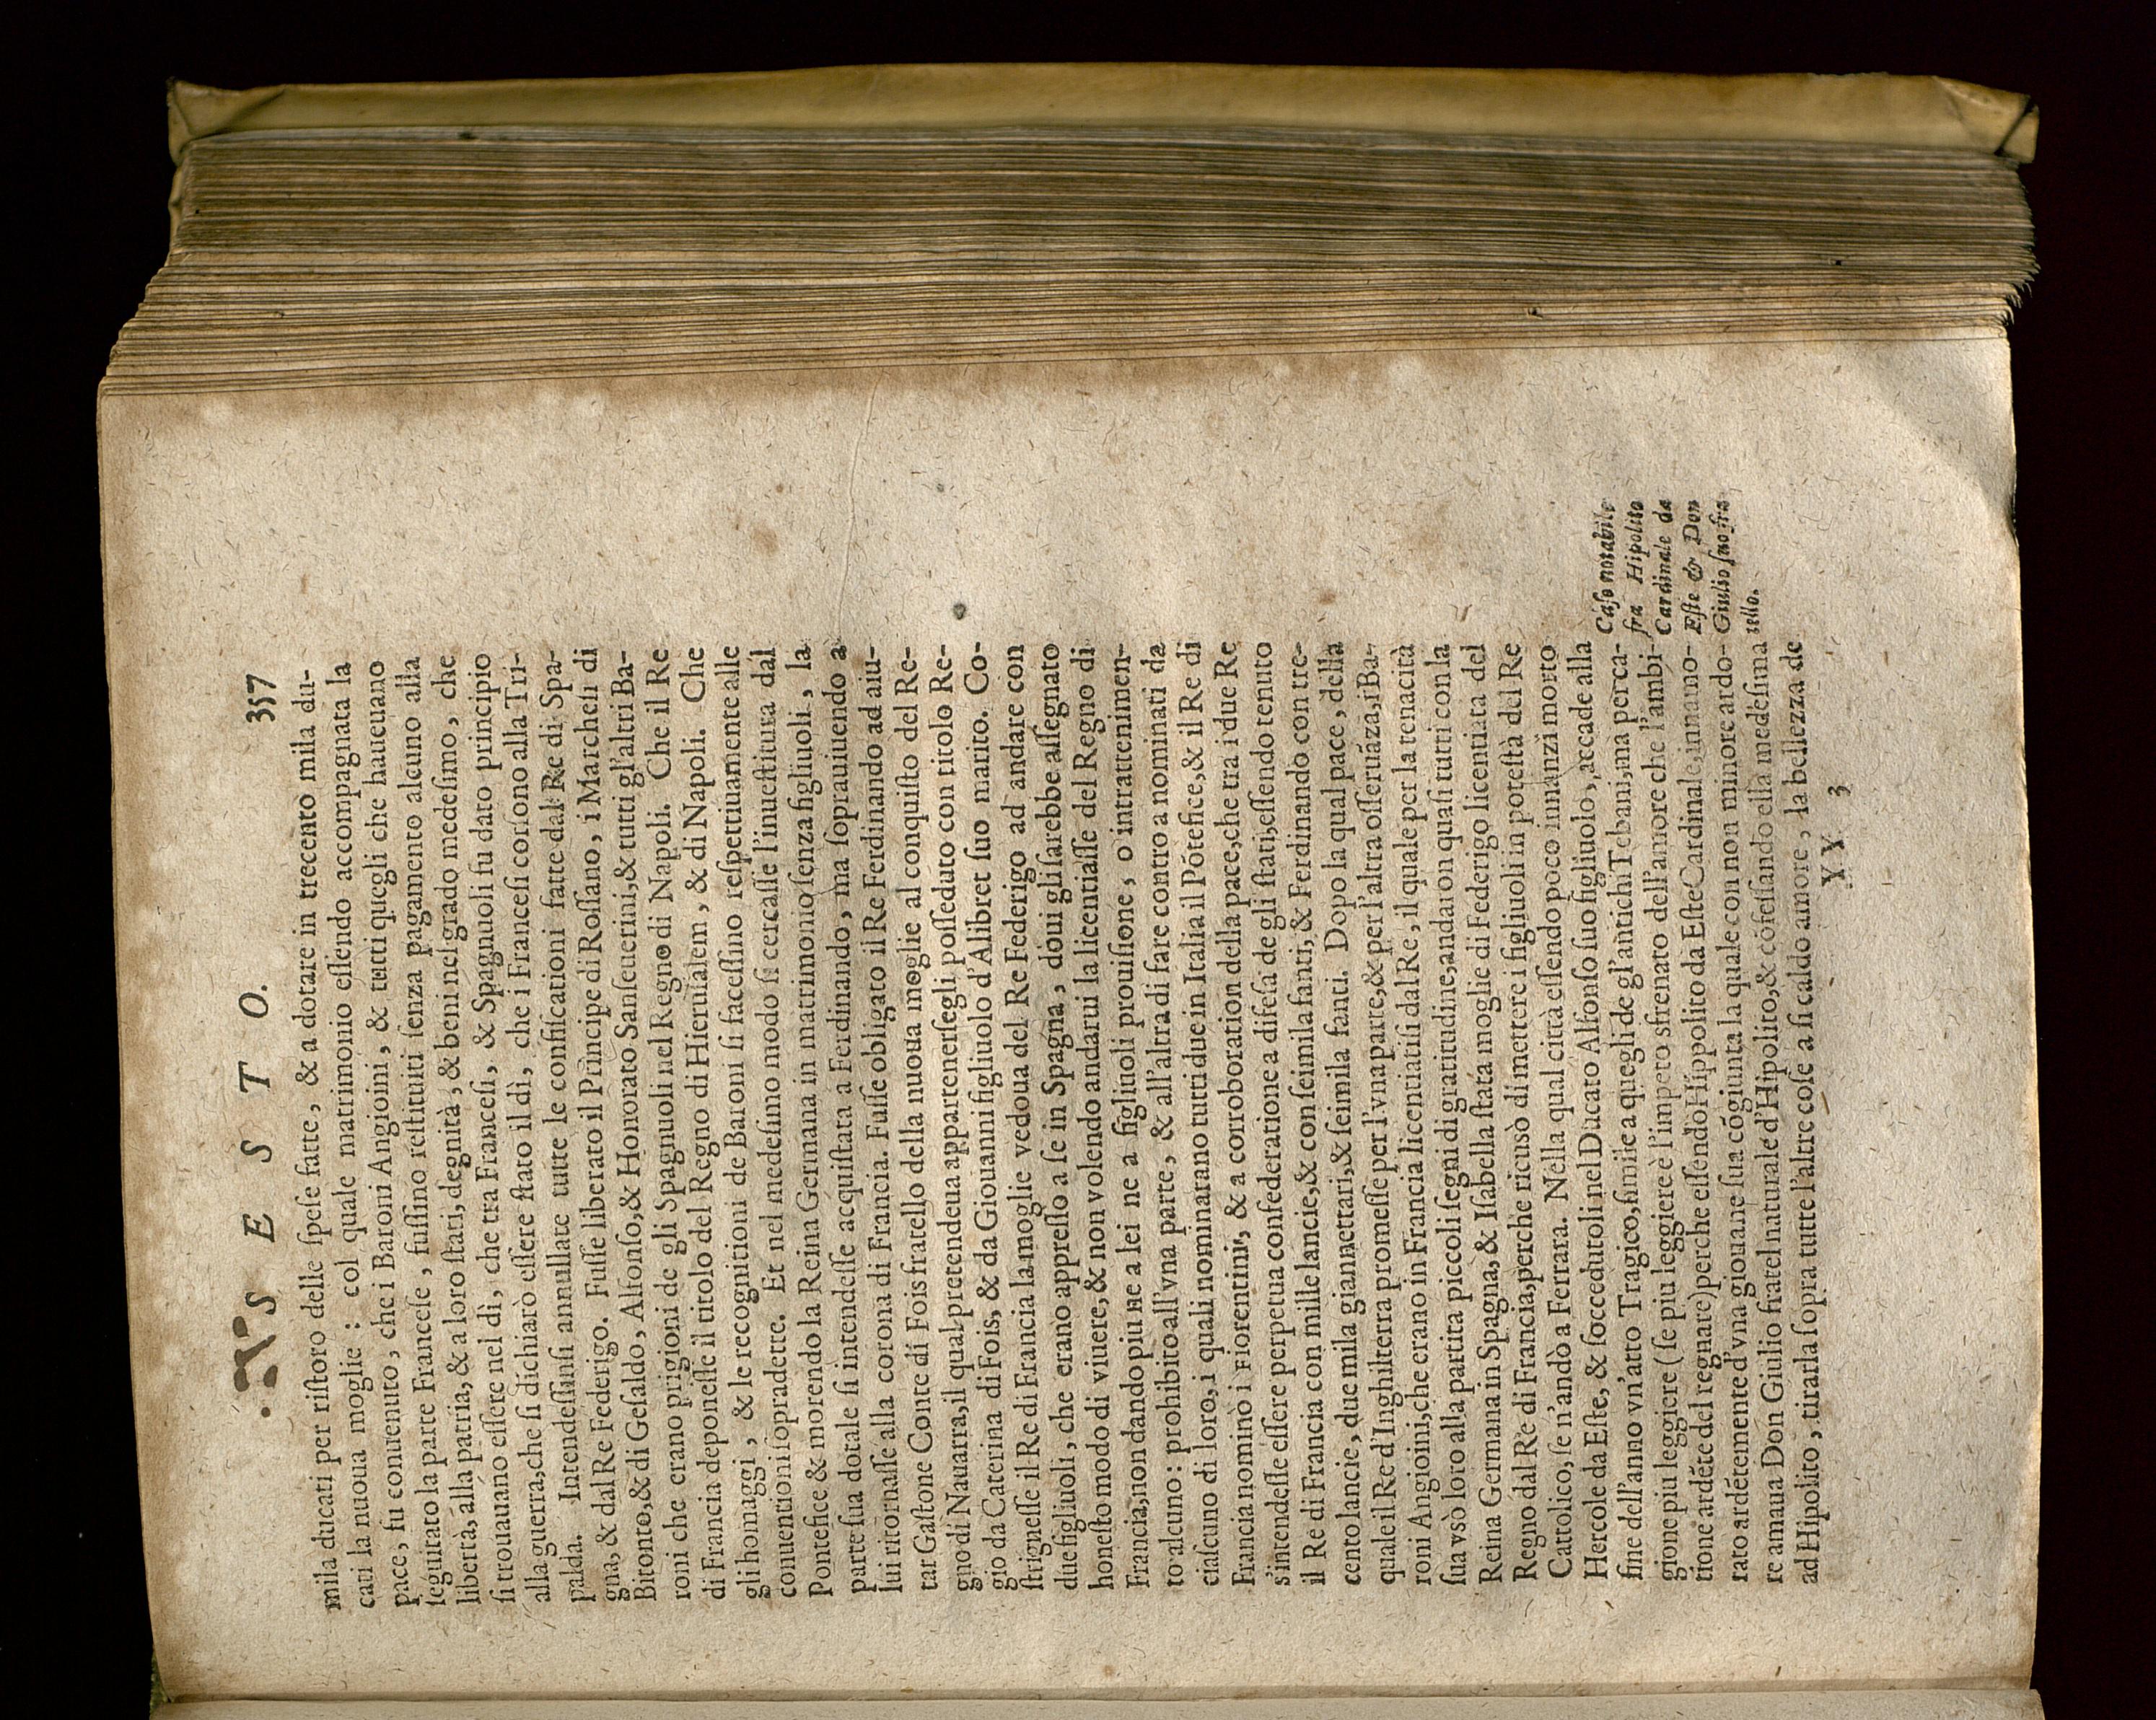 S E S T O. 357
mila ducati per riſtoro delle ſpeſe fatte, & a dotare in trecento mila du-
cati la nuoua moglie : col quale matrimonio eſſendo accompagnata la
pace, fu conuenuto, che i Baroni Angioini, & tutti quegli che haueuano
ſeguitato la parte Franceſe, fuſſino reſtituiti ſenza pagamento alcuno alla
libertà, alla patria, & a loro ſtati, degnità, & beni nel grado medeſimo, che
ſi trouauano eſſere nel dì, che tra Franceſi, & Spagnuoli fu dato principio
alla guerra, che ſi dichiarò eſſere ſtato il dì, che i Franceſi corſono alla Tri-
palda. Intendeſſinſi annullate tutte le confiſcationi fatte dal Re di Spa-
gna, & dal Re Federigo. Fuſſe liberato il Principe di Roſſano, i Marcheſi di
Bitonto, & di Geſaldo, Alfonſo, & Honorato Sanſeuerini, & tutti gl'altri Ba-
roni che erano prigioni de gli Spagnuoli nel Regno di Napoli. Che il Re
di Francia deponeſſe il titolo del Regno di Hieruſalem, & di Napoli. Che
gli homaggi, & le recognitioni de Baroni ſi faceſſino reſpettiuamente alle
conuentioni ſopradette. Et nel medeſimo modo ſi cercaſſe l'inueſtitura dal
Pontefice & morendo la Reina Germana in matrimonio ſenza figliuoli, la
parte ſua dotale ſi intendeſſe acquiſtata a Ferdinando, ma ſoprauiuendo a
lui ritornaſſe alla corona di Francia. Fuſſe obligato il Re Ferdinando ad aiu-
tar Gaſtone Conte di Fois fratello della nuoua moglie al conquiſto del Re-
gno di Nauarra, il qual pretendeua appartenerſegli poſſeduto con titolo Re-
gio da Caterina di Fois, & da Giouanni figliuolo d'Alibret ſuo marito. Co-
ſtrigneſſe il Re di Francia la moglie vedoua del Re Federigo ad andare con
due figliuoli, che erano appreſſo a ſe in Spagna, doui gli ſarebbe aſſegnato
honeſto modo di viuere, & non volendo andarui la licentiaſſe del Regno di
Francia, non dando piu ne a lei ne a figliuoli prouiſione, o intrattenimen-
to alcuno : prohibito all'vna parte, & all'altra di fare contro a nominati da
ciaſcuno di loro, i quali nominarano tutti due in Italia il Pōtefice, & il Re di
Francia nominò i Fiorentini, & a corroboration della pace, che tra i due Re
s'intendeſſe eſſere perpetua confederatione a difeſa de gli ſtati, eſſendo tenuto
il Re di Francia con mille lancie, & con ſeimila fanti, & Ferdinando con tre-
cento lancie, due mila giannettari, & ſeimila fanti. Dopo la qual pace, della
quale il Re d'Inghilterra promeſſe per l'vna parte, & per l'altra oſſeruāza, i Ba-
roni Angioini, che erano in Francia licentiatiſi dal Re, il quale per la tenacità
ſua vsò loro alla partita piccoli ſegni di gratitudine, andaron quaſi tutti con la
Reina Germana in Spagna, & Iſabella ſtata moglie di Federigo licentiata del
Regno dal Re di Francia, perche ricusò di mettere i figliuoli in poteſtà del Re
Cattolico, ſe n'andò a Ferrara. Nella qual città eſſendo poco innanzi morto
Hercole da Eſte, & ſoccedutoli nel Ducato Alfonſo ſuo figliuolo, accade alla
fine dell'anno vn'atto Tragico, ſimile a quegli de gl'antichi Tebani, ma per ca-
gione piu leggiere (ſe piu leggiere è l'impeto sfrenato dell'amore che l'ambi-
tione ardēte del regnare) perche eſſendo Hippolito da Eſte Cardinale, innamo-
rato ardētemente d'vna giouane ſua cōgiunta la quale con non minore ardo-
re amaua Don Giulio fratel naturale d'Hipolito, & cōfeſſando ella medeſima
ad Hipolito, tirarla ſopra tutte l'altre coſe a ſi caldo amore, la bellezza de
Caſo notabile
fra Hipolito
Cardinale da
Eſte & Don
Giulio ſuo fra
tello.
YY 3